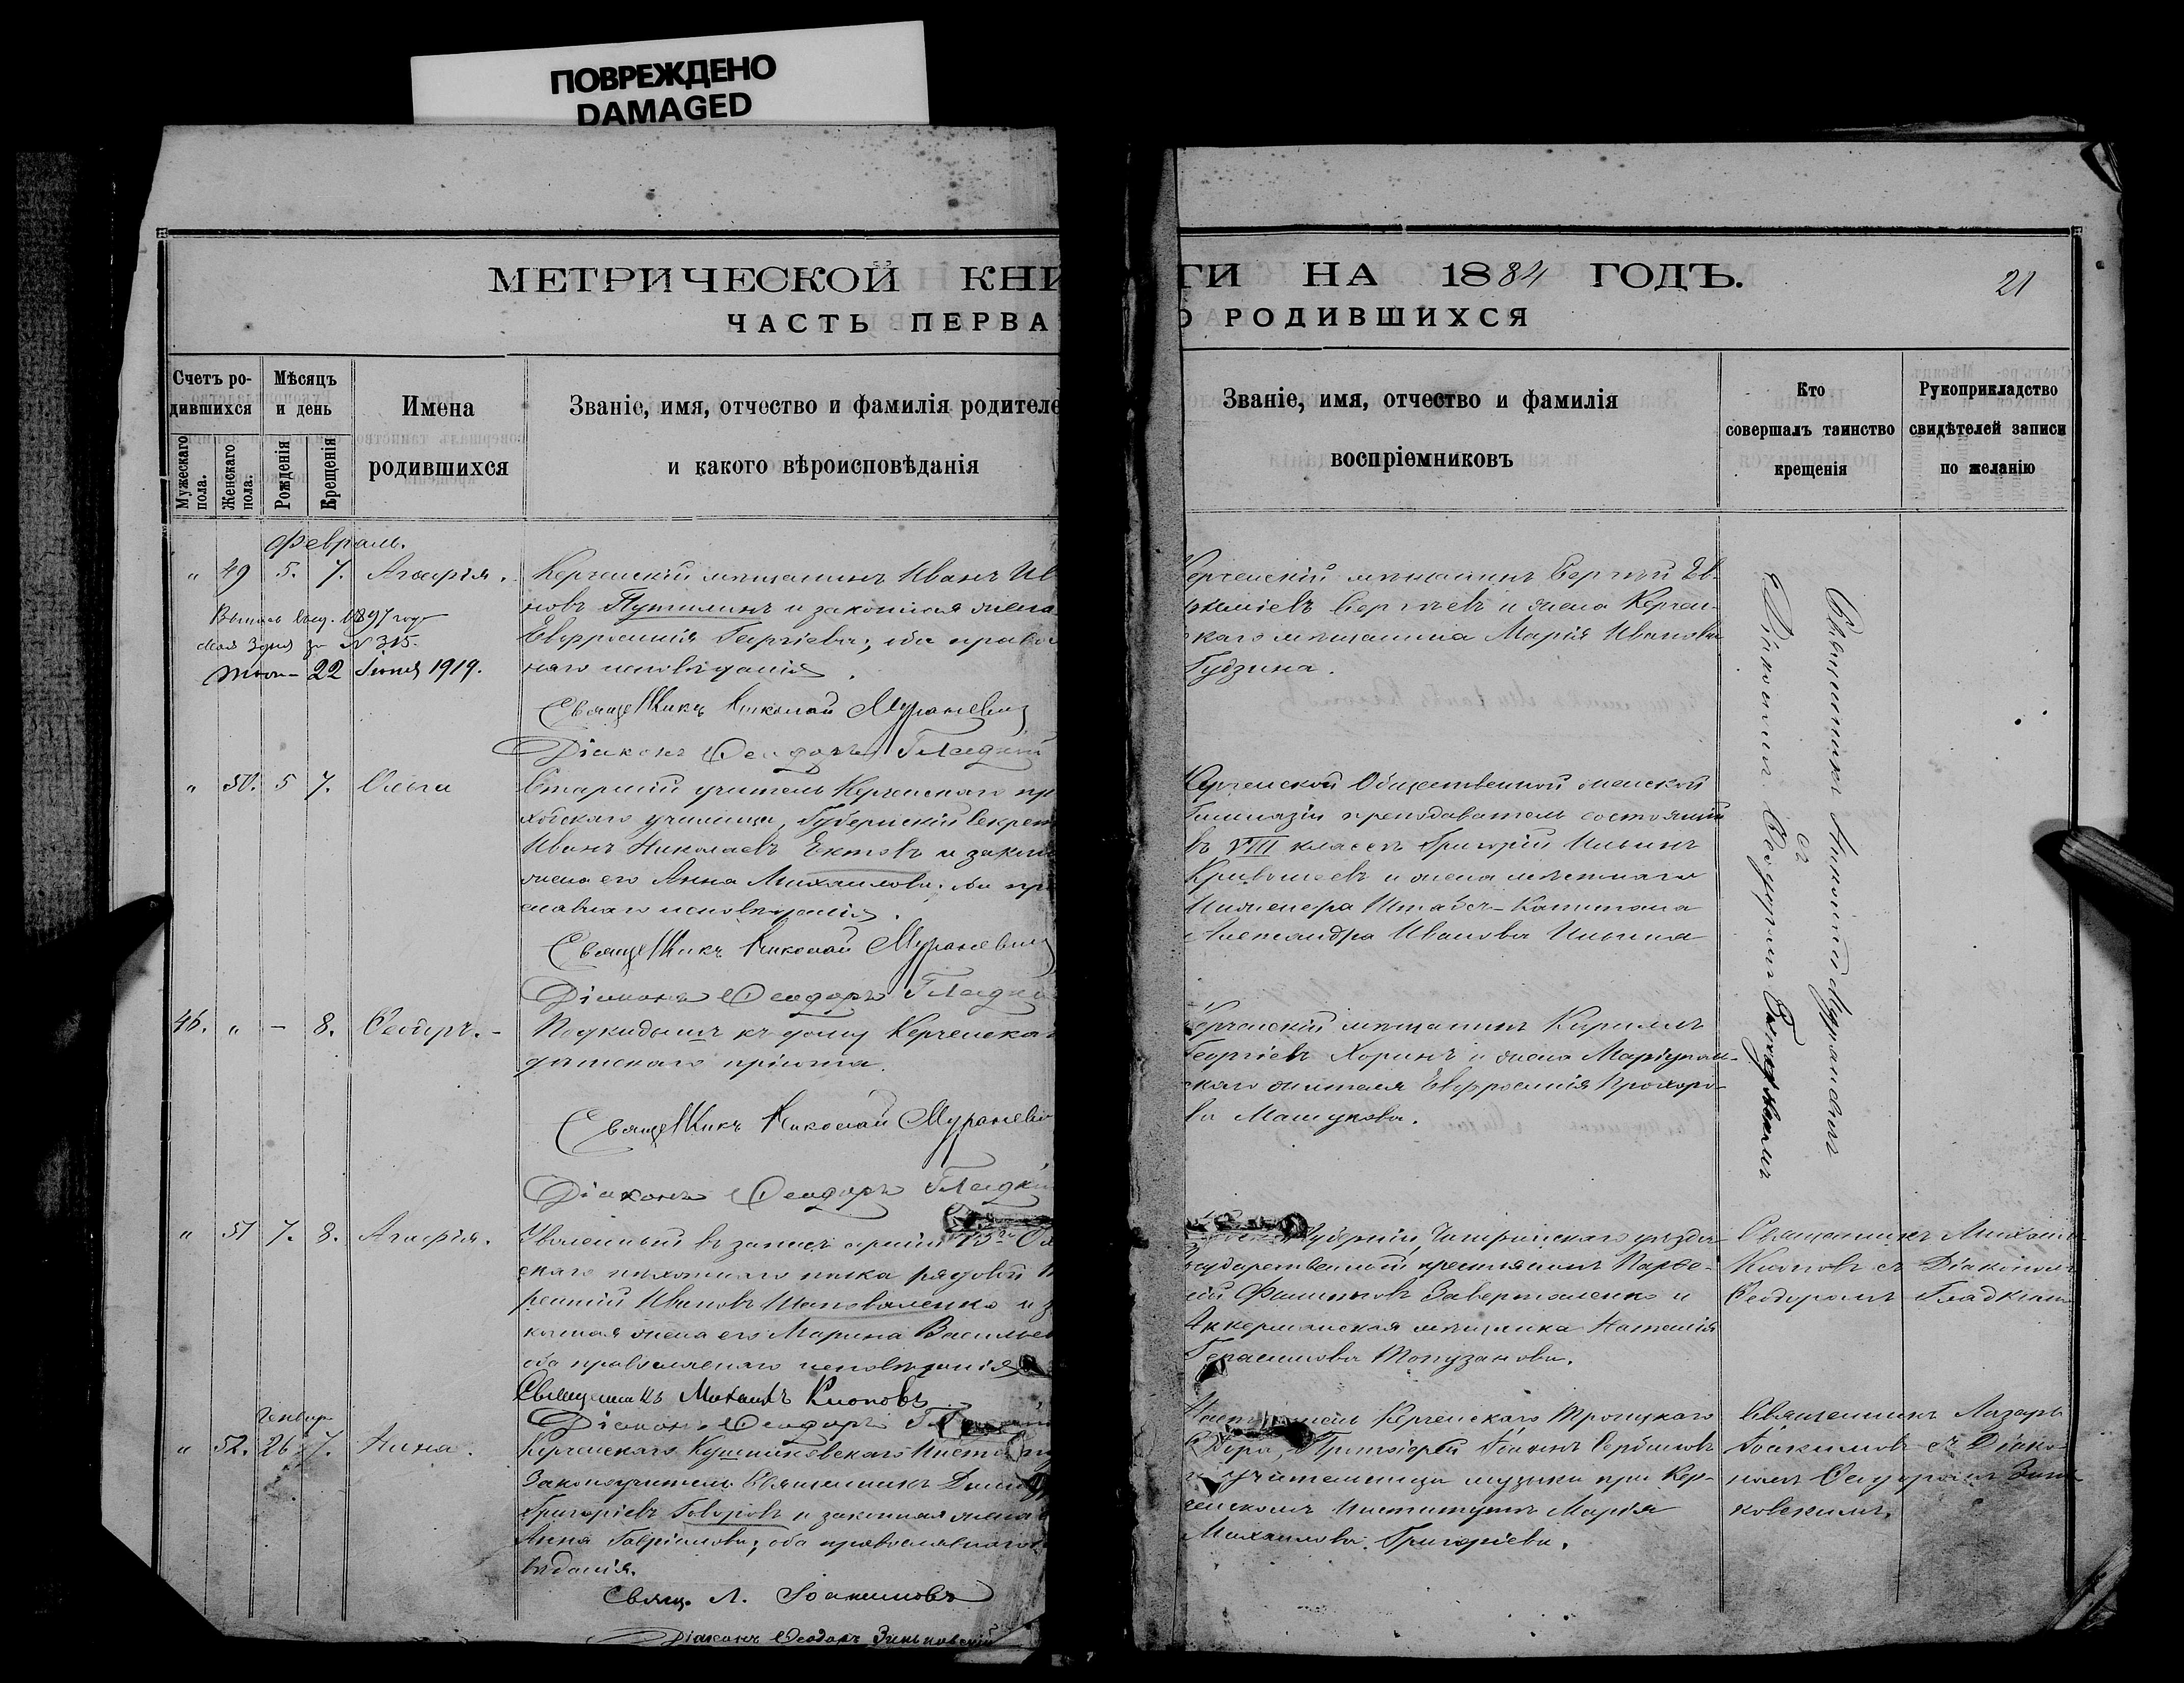 ПОВРЕЖДЕНО
DAMAGED
МЕТРИЧЕСКОЙ КНИ
ГИ НА 1884 ГОДЪ.
21
ЧАСТЬ ПЕРВА
О РОДИВШИХСЯ
Счетъ ро-
дившихся
Мужескаго пола.
Женскаго пола.
Мѣсяцъ
и день
Рожденія
Крещенія
Имена
родившихся
Званіе, имя, отчество и фамилія родителе
и какого вѣроисповѣданія
Званіе, имя, отчество и фамилія
воспріемниковъ
Кто
совершалъ таинство
крещенія
Рукоприкладство
свидѣтелей записи
по желанію
Февраль.
" 49 5. 7. Агафія.
1897 году
№ 315.
22 Іюня 1919.
Керченскій мѣщанинъ Иванъ Ив
новъ Путилинъ и законная жена
Евфросинія Георгіева; оба право
наго исповѣданія
Священникъ Николай Мураневич
Діаконъ Ѳеодоръ Гладкій
Керченскій мѣщанинъ Сергѣй Ев-
Сергѣевъ и жена Керчен-
скаго мѣщанина Марія Иванова
Гудзина.
" 50. 5 7. Ольга
Старшій учитель Керченскаго пр
ходскаго училища, Губернскій Секрет
Иванъ Николаевъ Ектовъ и закон
жена его Анна Михаилова; оба пра
славнаго исповѣданія.
Священникъ Николай Мураневич
Діаконъ Ѳеодоръ Гладкій
Керченской Общественной женской
Гимназіи преподаватель состоящій
въ VIII классѣ Григорій Ильинъ
Кривошеевъ и жена
Инженера Штабсъ-Капитана
Александра Иванова Ильина
46. " - 8. Ѳеодоръ.-
Подкидышъ къ дому Керченска
дѣтскаго пріюта.
Священникъ Николай Мураневич
Діаконъ Ѳеодоръ Гладкій
Керченскій мѣщанинъ Кириллъ
Георгіевъ Хоринъ и жена Маріупол-
скаго жителя Евфросинія Прохоро-
ва Машукова.
Священникъ Николай Мураневичъ
съ
Діакономъ Ѳеодоромъ Гладкимъ
" 51 7. 8. Агафія.
Уволенный въ запасъ арміи
скаго пѣхотнаго полка рядовой
Ивановъ Шаповаленко и з
конная жена его Марина Василье
оба православнаго исповѣданія
Священникъ Михаилъ Клоповъ
Діаконъ Ѳеодоръ
Губерніи, Чигиринскаго уѣзда
Государственный крестьянинъ Парфе-
ній Филиповъ Заверталенко и
Аккерманская мѣщанка Наталія
Герасимова Топузанова.
Священникъ Михаилъ
Клоповъ съ Діакономъ
Ѳеодоромъ Гладкимъ
Генваря
" 52. 26 7. Анна.
Керченскаго Кушниковскаго Инстит
Законоучитель Священникъ
Григоріевъ Говоровъ и законная жена
Анна Гавріилова; оба православнаго
вѣданія.
Свящ. Л. Іоакимовъ
Діаконъ Ѳеодоръ Зиньковскій
Керченскаго Троицкаго
Собора, Протоіерей Іоаннъ Сербиновъ
и учительница музыки при Кер-
ченскомъ Институтѣ Марія
Михаилова Григоріева.
Священникъ Лазарь
Іоакимовъ съ Діако-
номъ Ѳеодоромъ Зинь-
ковскимъ.